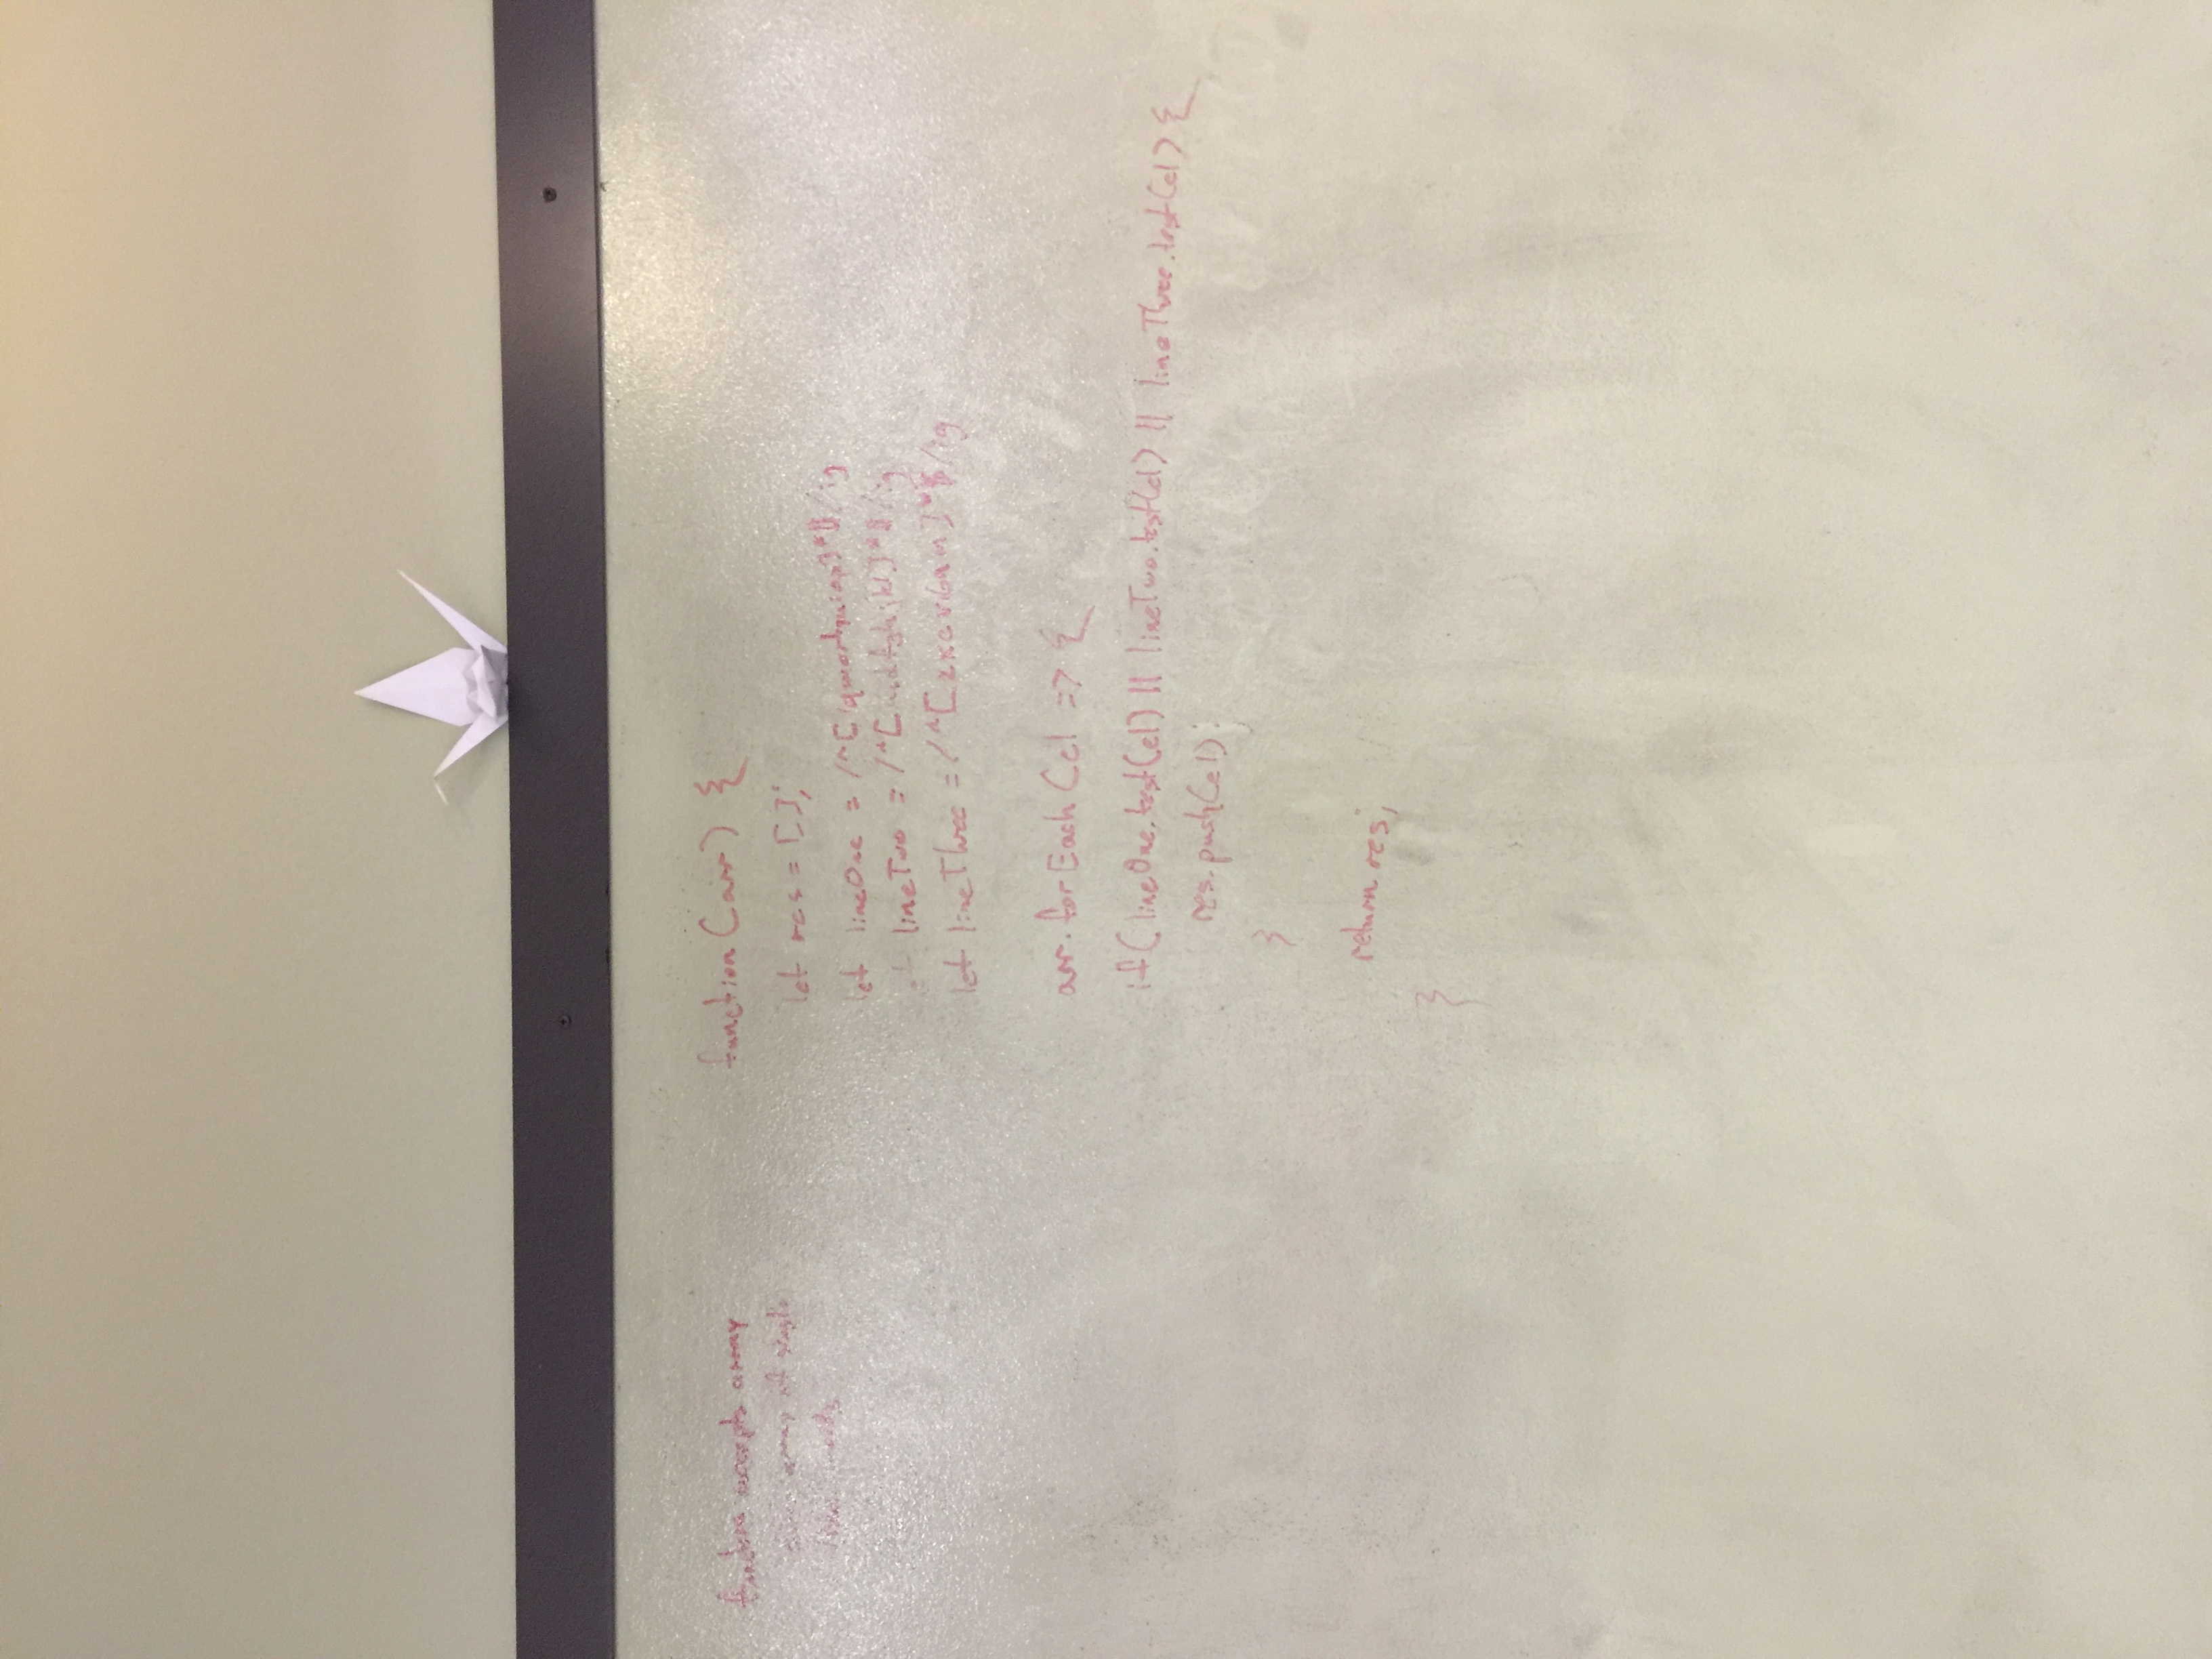 function accepts array
array of single
function(arr) {
let res = [];
let lineOne = /^[qwertyuiop]*$/ig
lineTwo = /^[]*$/ig
let lineThree = /^[zxcvbnm]*$/ig
arr.forEach(el => {
if(lineOne.test(el) || lineTwo.test(el) || lineThree.test(el) {
res.push(el);
}
return res;
}